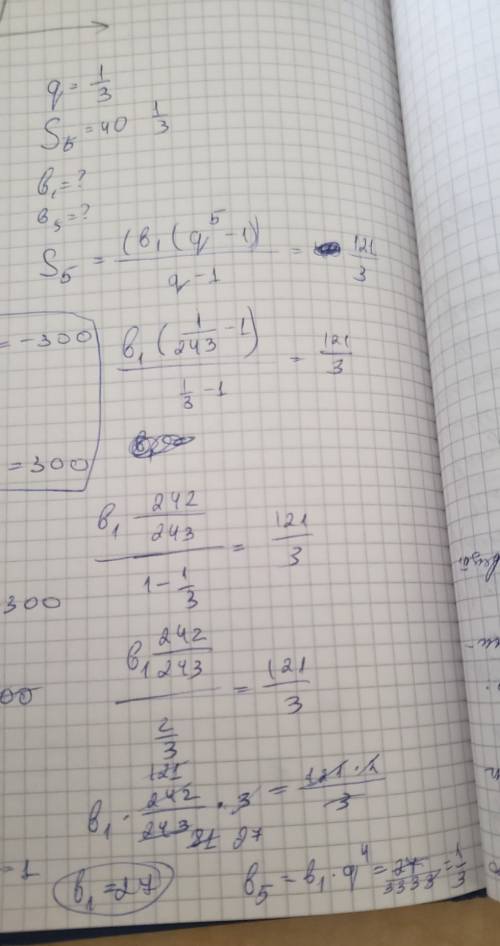 q = 1/3
S5 = 40 1/3
b1 = ?
b5 = ?
S5 = (b1 (q^5 - 1)) / (q - 1) = 121/3
= -300
b1 (1/243 - 1) / (1/3 - 1) = 121/3
= 300
b1 242/243 / (1 - 1/3) = 121/3
300
b1 242/243 / (2/3) = 121/3
00
121
b1 · 242/243 · 3 = 121 · 2/3
81 27
= 1
b1 = 27
b5 = b1 · q^4 = 27/3333 = 1/3